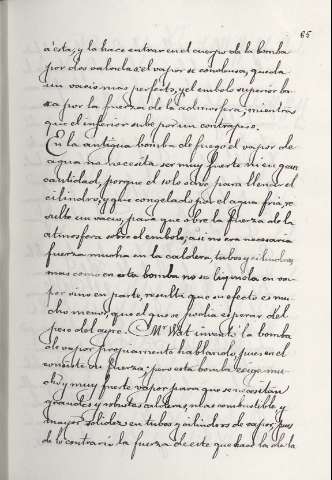 65
à esta, y la hace entrar en el cuerpo de la bomba
por dos valvulas: el vapor se condensa, queda
un vacio mas perfecto, y el embolo superior ba-
xa por la fuerza de la atmosfera; mientras
que el inferior sube por un contrapeso.
En la antigua bomba de fuego el vapor de
agua no necesita ser muy fuerte ni en gran
cantidad, porque el solo sirve para llenar el
cilindro, y que congelado por el agua fria, re-
sulte un vacio, para que obre la fuerza de la
atmosfera sobre el embolo; asi no era necesaria
fuerza mucha en la caldera, tubos y cilindros,
mas como en esta bomba no se liquida en va-
por sino en parte, resulta que su efecto es mu-
cho menor, que el que se podia esperar del
peso del ayre. Mr. Wat inventó la bomba
de vapor propiamente hablando, pues en el
consiste la fuerza: pero esta bomba exige mu-
cho y muy fuerte vapor para que se necesitan
grandes y robustas calderas, mas combustible, y
mayor solidez en tubos y cilindros de vapor, pues
de lo contrario la fuerza de este quebraria la de la